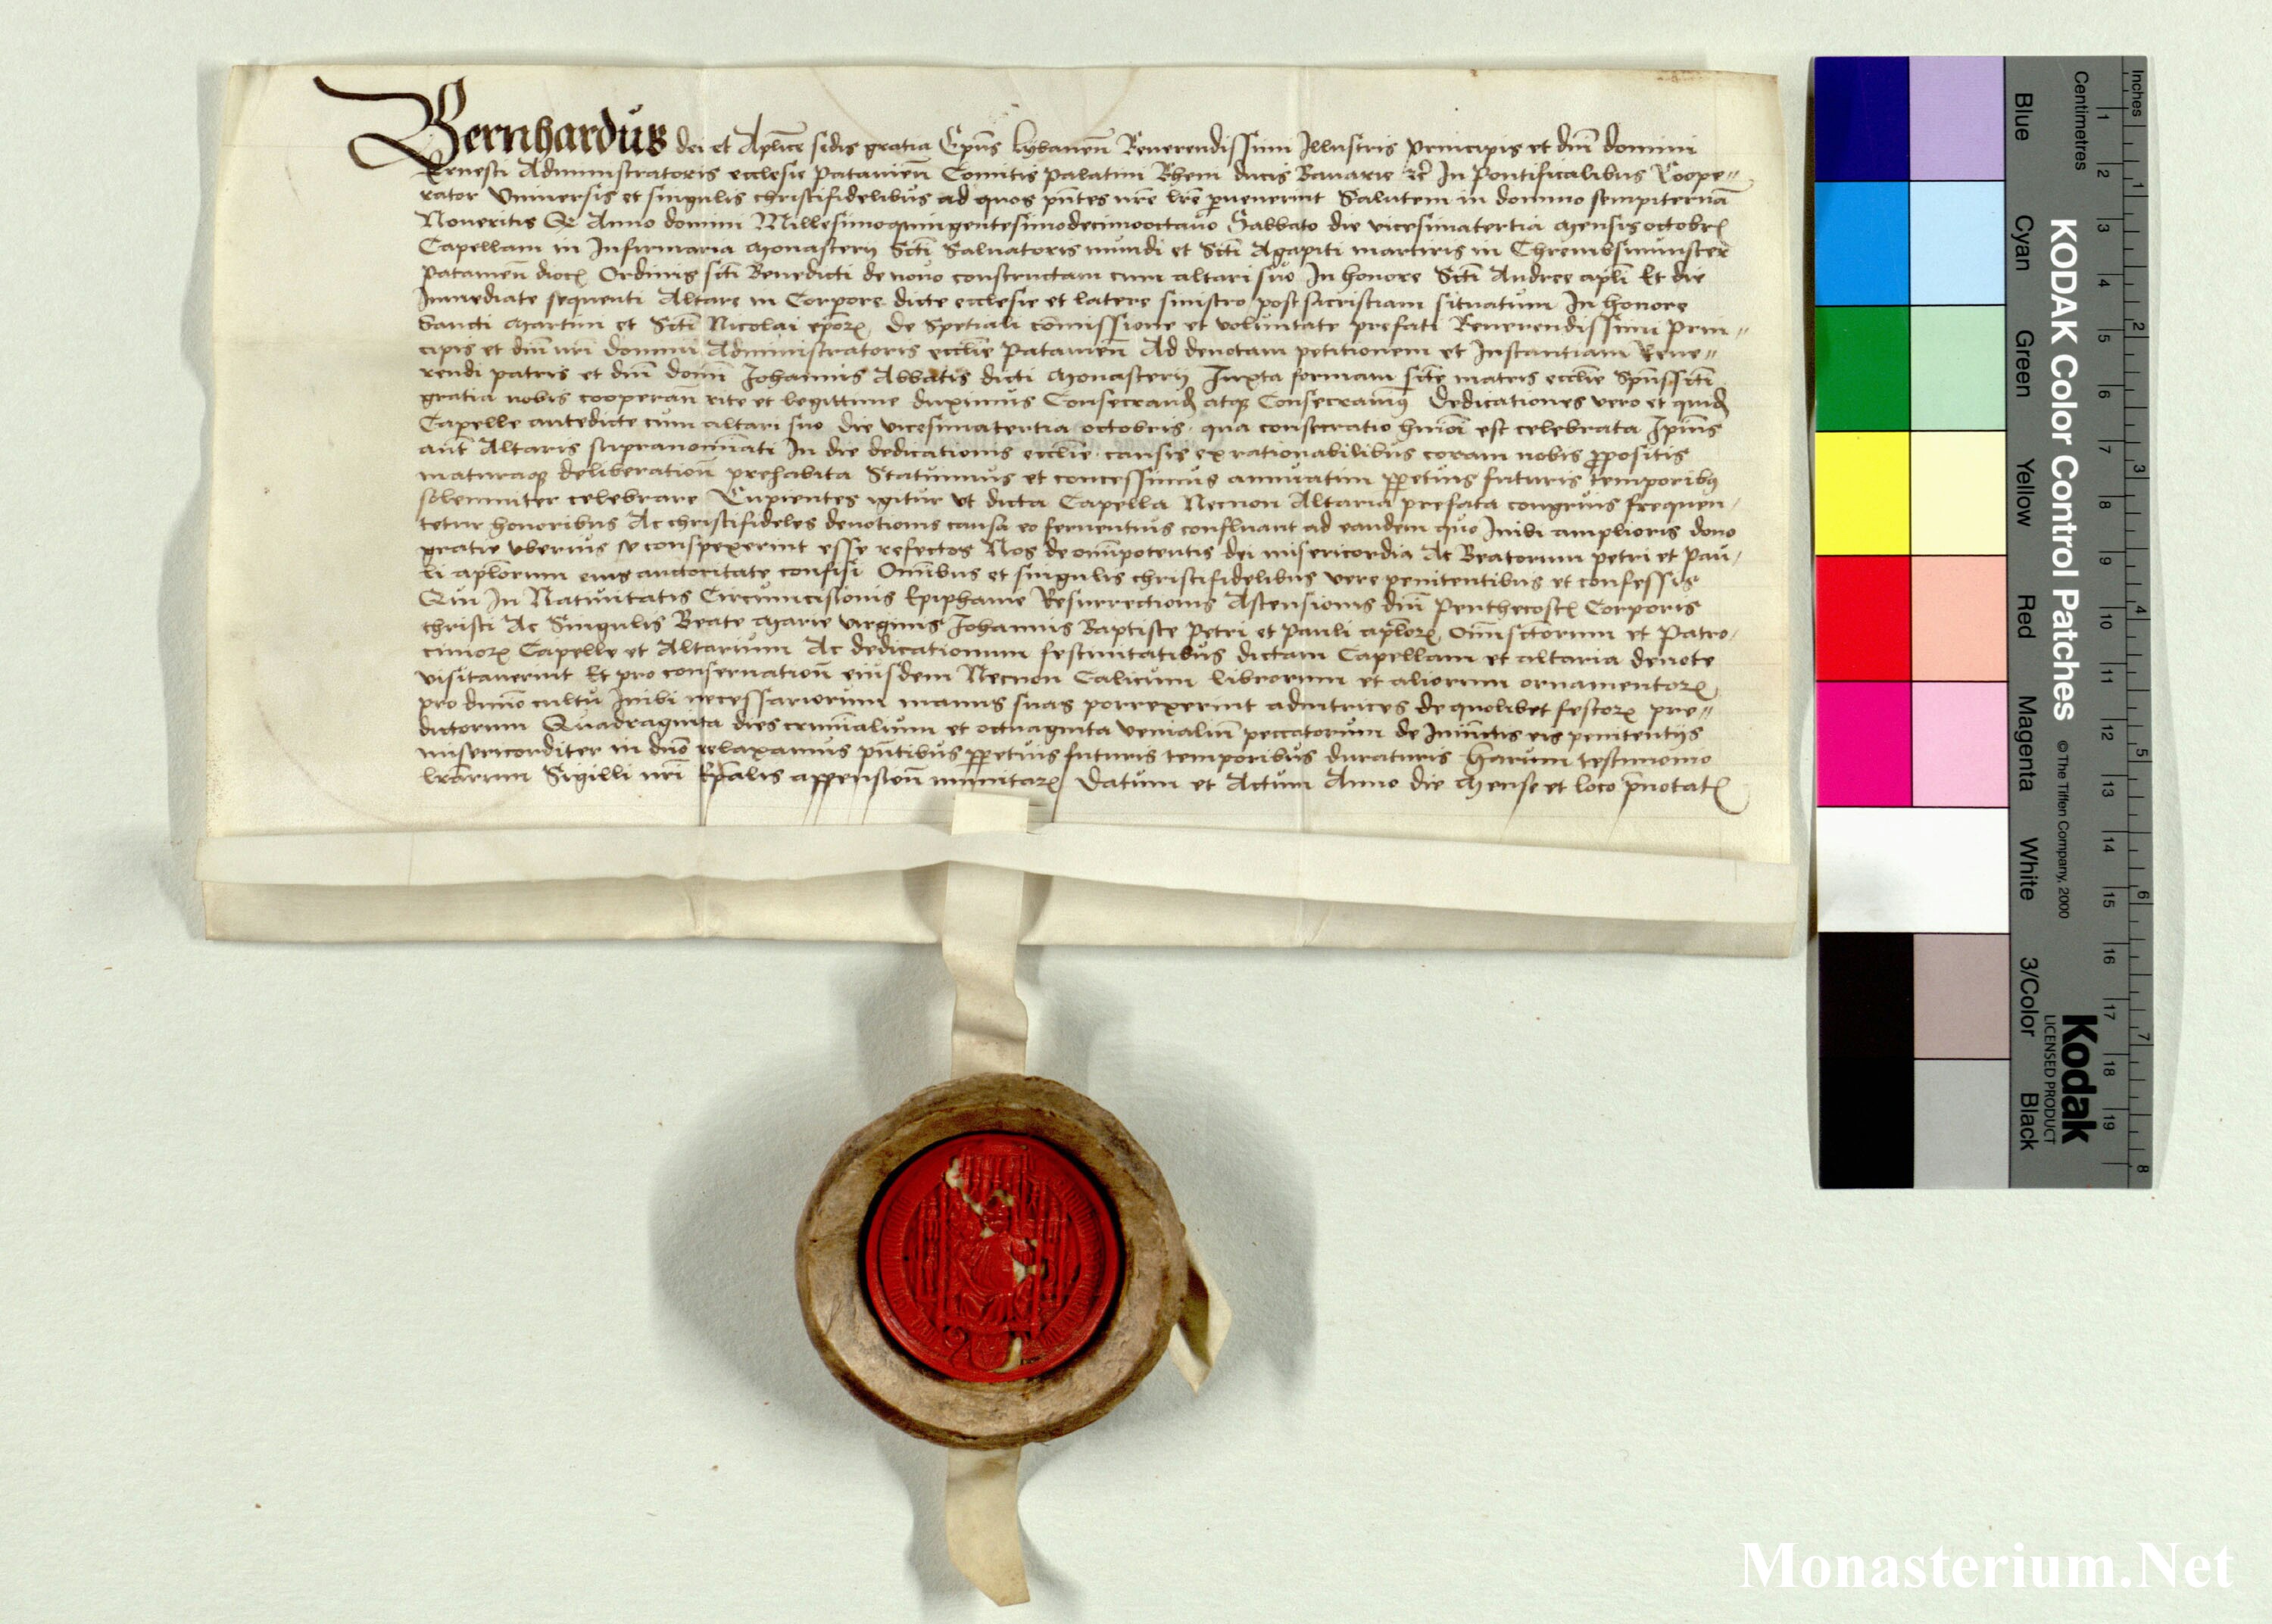 Bernhardus dei et Aplice sedis gratia Epūs lybanen̄ Reverendissimi Illustris principis et dnī domini
Ernesti Administratoris ecclesie patavien̄ Comitis palatini Rheni ducis Bavarie ⁊c̄ In pontificalibus Coope〃
rator Universis et singulis christifidelibus ad quos pn̄tes nr̄e lr̄e pervenerint Salutem in domino sempiternā
Noveritis Qe Anno domini Millesimoquingentesimodecimooctavo Sabbato die vicesimatertia mensis octobrꝭ
Capellam in Infirmaria monasterij Sctī Salvatoris mundi et Sctī Agapiti martiris in Chrembsmunster
patavien̄ diocꝭ Ordinis sctī Benedicti de novo constructam cum altari suo In honore Sctī Andree aplī Et die
Immediate sequenti Altare in Corpore dicte ecclesie et latere sinistro post sacristiam situatum In honore
Sancti Martini et Sctī Nicolai epōrꝝ de Spetiali cōmissione et voluntate prefati Reverendissimi prin〃
cipis et dnī nrī domini Administratoris ecclīe patavien̄ Ad devotam petitionem et Instantiam Reve〃
rendi patris et dnī domī Johannis Abbatis dicti monasterij Juxta formam scte matris ecclīe Spūssctī
gratia nobis cooperan̄ rite et legittime duximus Consecrand̄ atqꝫ Consecravimꝰ Dedicationes vero et quid̄
Capelle antedicte cum altari suo die vicesimatertia octobris qua consecratio hmōi est celebrata Ipsius
aut̄ Altaris supranominati In die dedicationis ecclīe causis ex rationabilibus coram nobis ꝓpositis
maturaqꝫ deliberation̄ prehabita Statuimus et concessimus annuatim ꝑpetuis futuris temporibꝰ
solemniter celebrare Cupientes igitur ut dicta Capella Necnon Altaria prefata congruis frequen/
tetur honoribus Ac christifideles devotionis causa eo ferventius confluant ad eandem quo Inibi amplioris dono
gratie uberius se conspexerint esse refectos Nos de omīpotentis dei misericordia Ac Beatorum petri et pau/
li aplōrum eius auctoritate confisi Omībus et singulis christifidelibus vere penitentibus et confessis
Qui In Nativitatis Circumcisionis Epiphanie Resurrectionis Ascensionis dnī Penthecostꝭ Corporis
christi Ac Singulis Beate Marie virginis Johannis Baptiste Petri et Pauli aplōrꝝ Omīsctōrum et Patro/
cinorꝝ Capelle et Altarium Ac dedicationum festivitatibus dictam Capellam et altaria devote
visitaverint Et pro conservation̄ eiusdem Necnon Calicum librorum et aliorum ornamentorꝝ
pro divino cultu Inibi necessariorum manus suas porrexerint adiutrices de quolibet festorꝝ pre〃
dictorum Quadraginta dies criminalium et octuaginta venialiū peccatorum de Iniūctis eis penitentijs
misericorditer in dnō relaxamus pn̄tibus ꝑpetuis futuris temporibus duraturis Harum testimonio
lrārum Sigilli nrī Epālis appension̄ munitarꝝ Datum et Actum Anno die Mense et loco pn̄otatꝭ
KODAK Color Control Patches © The Tiffen Company, 2000
Kodak
LICENSED PRODUCT
Blue Cyan Green Yellow Red Magenta White 3/Color Black
Inches 1 2 3 4 5 6 7 8
Centimetres 1 2 3 4 5 6 7 8 9 10 11 12 13 14 15 16 17 18 19
Monasterium.Net